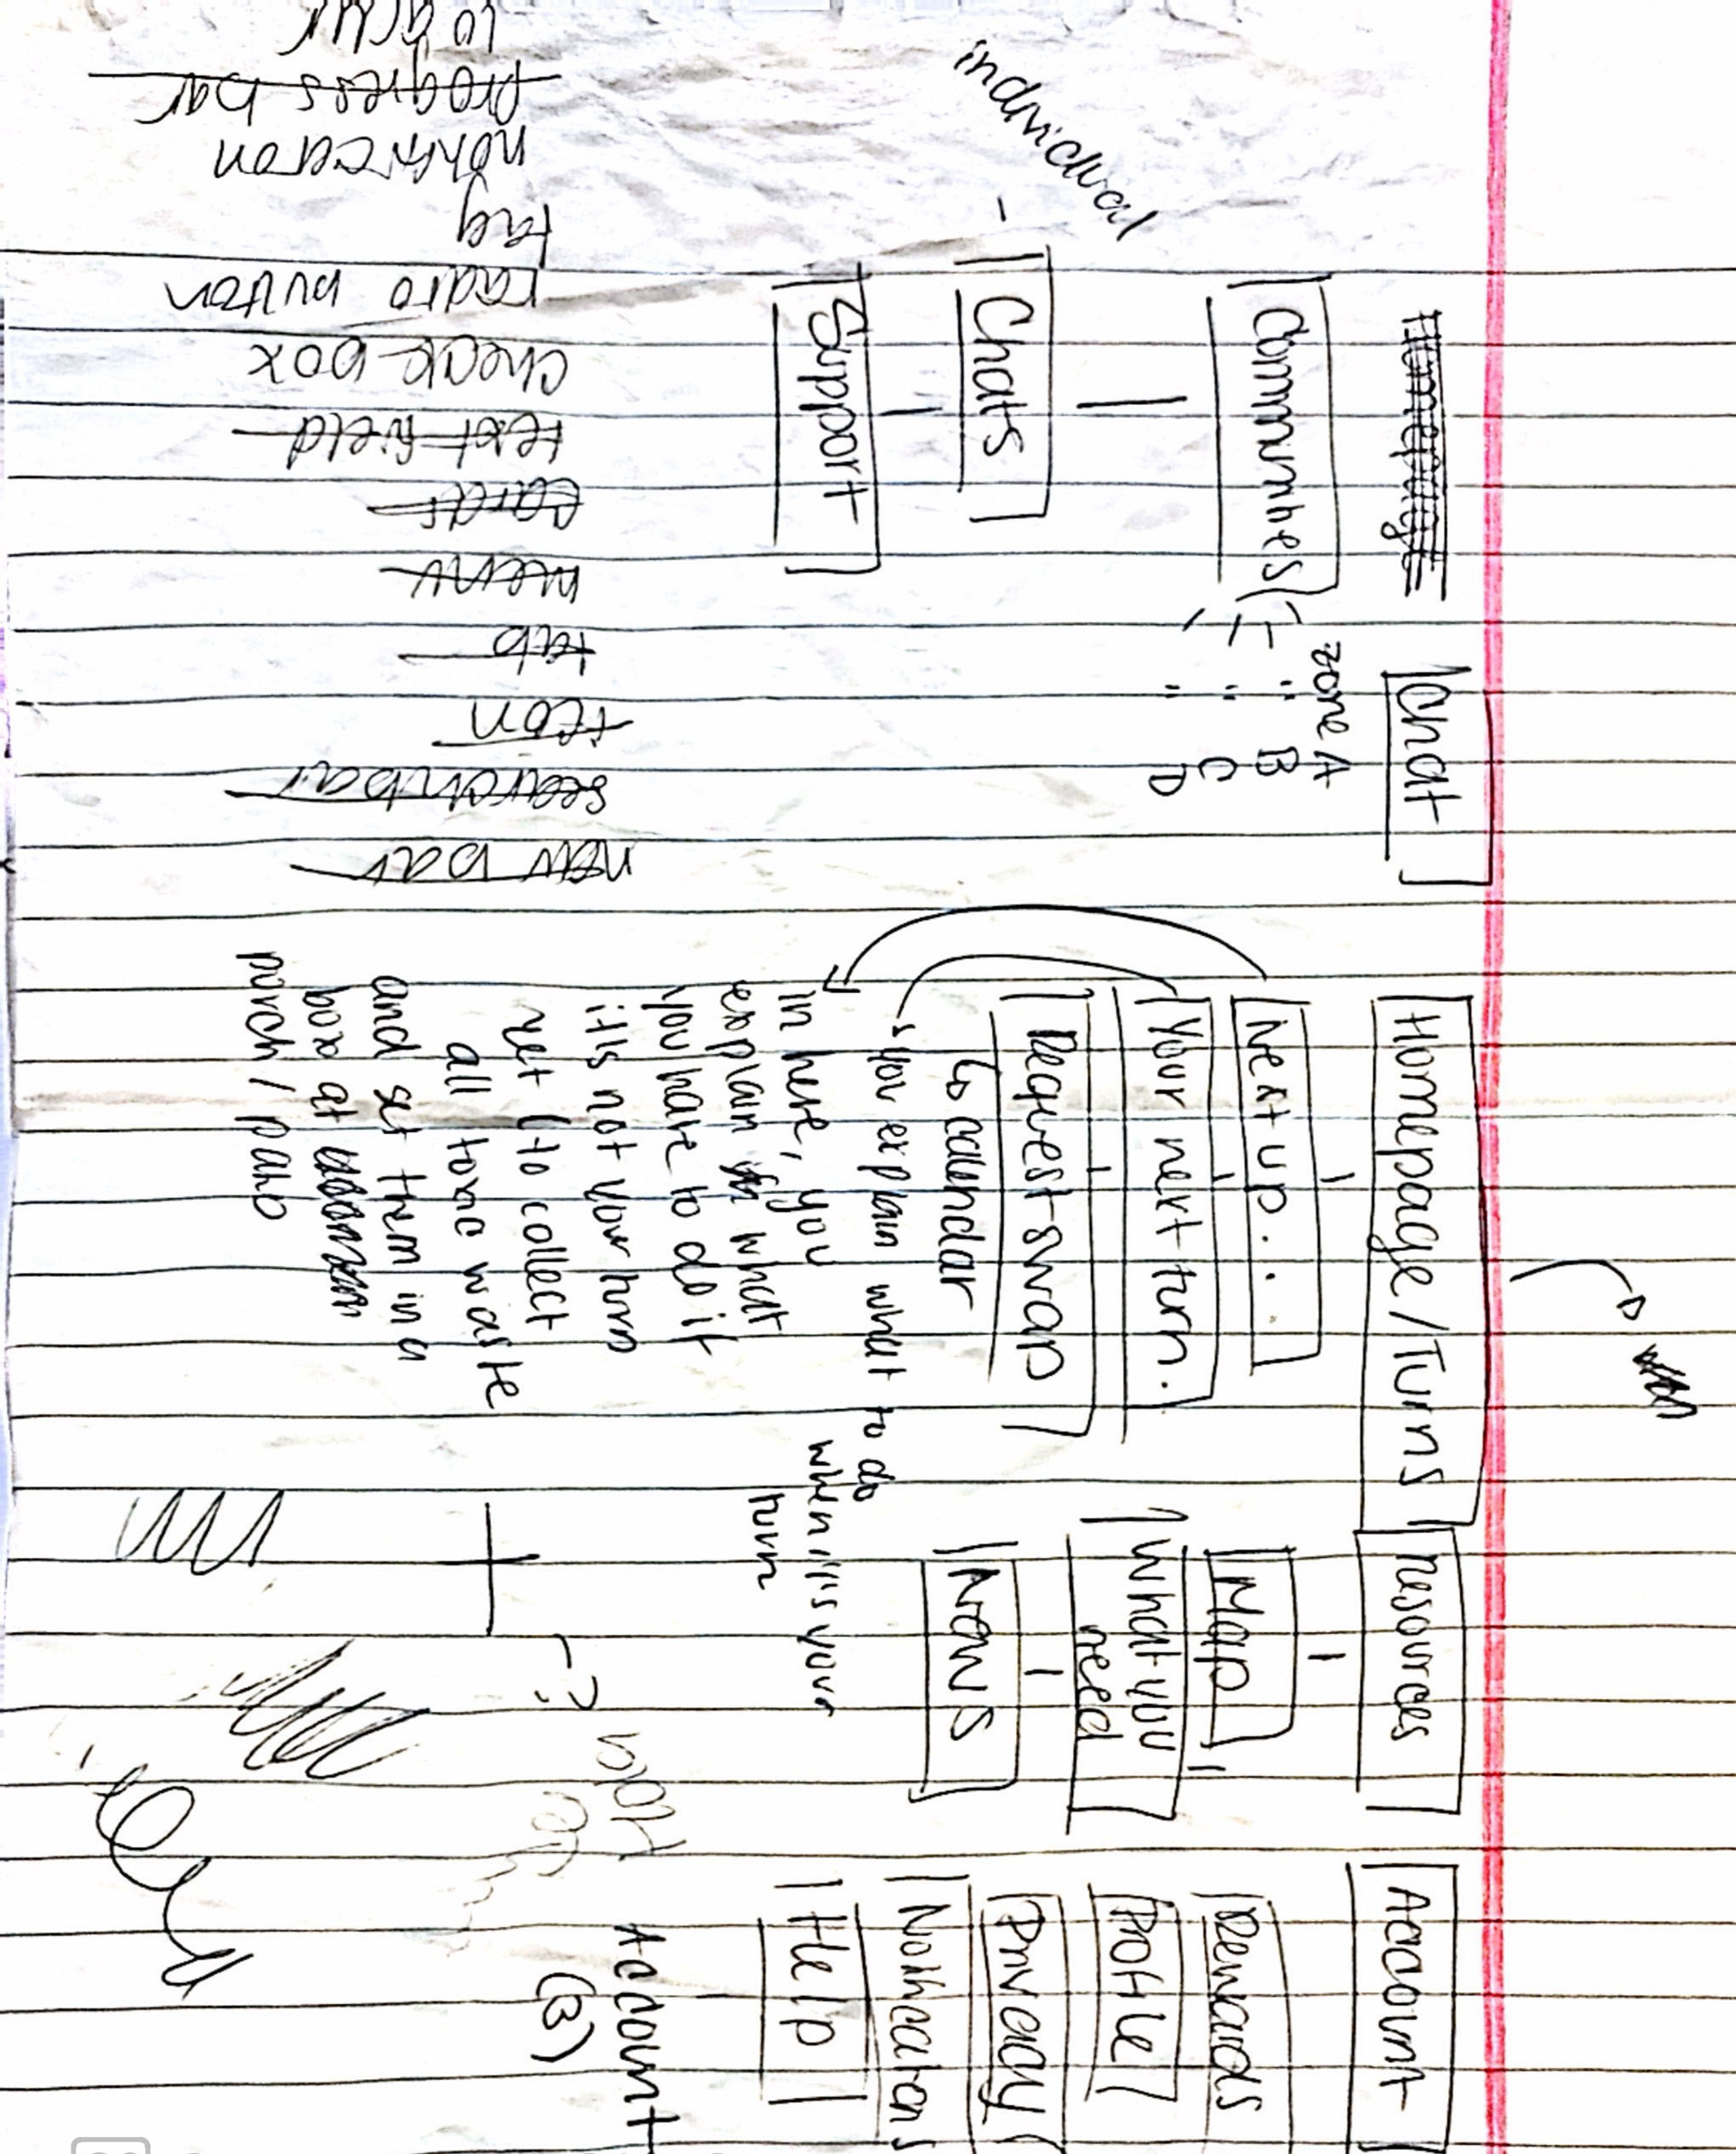 Chat
Communities
zone A
" B
" C
" D
Chats
individual
Support
Homepage/Turns
Next up....
Your next turn.
Request swap
↳ calendar
you explain what to do
when it's your
turn
in here, you
explain what
you have to do if
it's not your turn
yet (to collect
all toxic waste
and set them in a
box at
porch / patio
Resources
Map
What you
need
News
Account
Rewards
Profile
Privacy
Notifications
Help
Account
(3)
nav bar
searchbar
icon
tab
menu
cards
text field
check box
radio button
tag
notification
progress bar